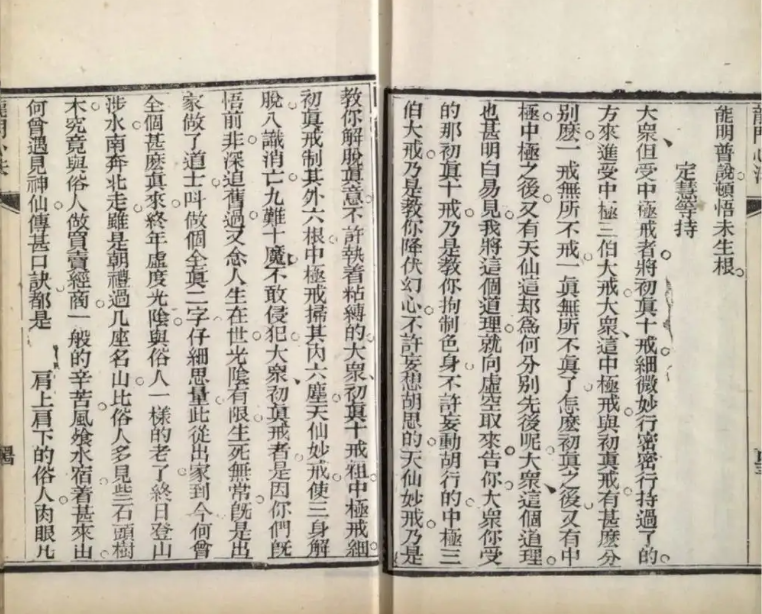 能明普說頓悟未生根
定慧等持
大衆但受中極戒者將初眞十戒細微妙行密密行持過了的
方來進受中極三伯大戒大衆這中極戒與初眞戒有甚麽分
別麽一戒無所不戒一眞無所不眞了怎麽初眞之後又有中
極中極之後又有天仙這却爲何分别先後呢大衆這個道理
也甚明白易見我將這個道理就向虛空取來告你大衆你受
的那初眞十戒乃是教你拘制色身不許妄動胡行的中極三
伯大戒乃是教你降伏幻心不許妄想胡思的天仙妙戒乃是
教你解脫眞意不許執着粘縛的大衆初眞十戒粗中極戒細
初眞戒制其外六根中極戒掃其內六塵天仙妙戒使三身解
脫八識消亡九難十魔不敢侵犯大衆初眞戒者是因你們旣
悟前非深追舊過又念人生在世光陰有限生死無常旣是出
家做了道士叫做個全眞二字仔細思量此從出家到今何曾
全個甚麽眞來終年虛度光陰與俗人一樣的老了終日登山
涉水南奔北走雖是朝禮過几座名山比俗人多見些石頭樹
木究竟與俗人做買賣經商一般的辛苦風飧水宿着甚來由
何曾遇見神仙傳甚口訣都是 肩上肩下的俗人肉眼凡